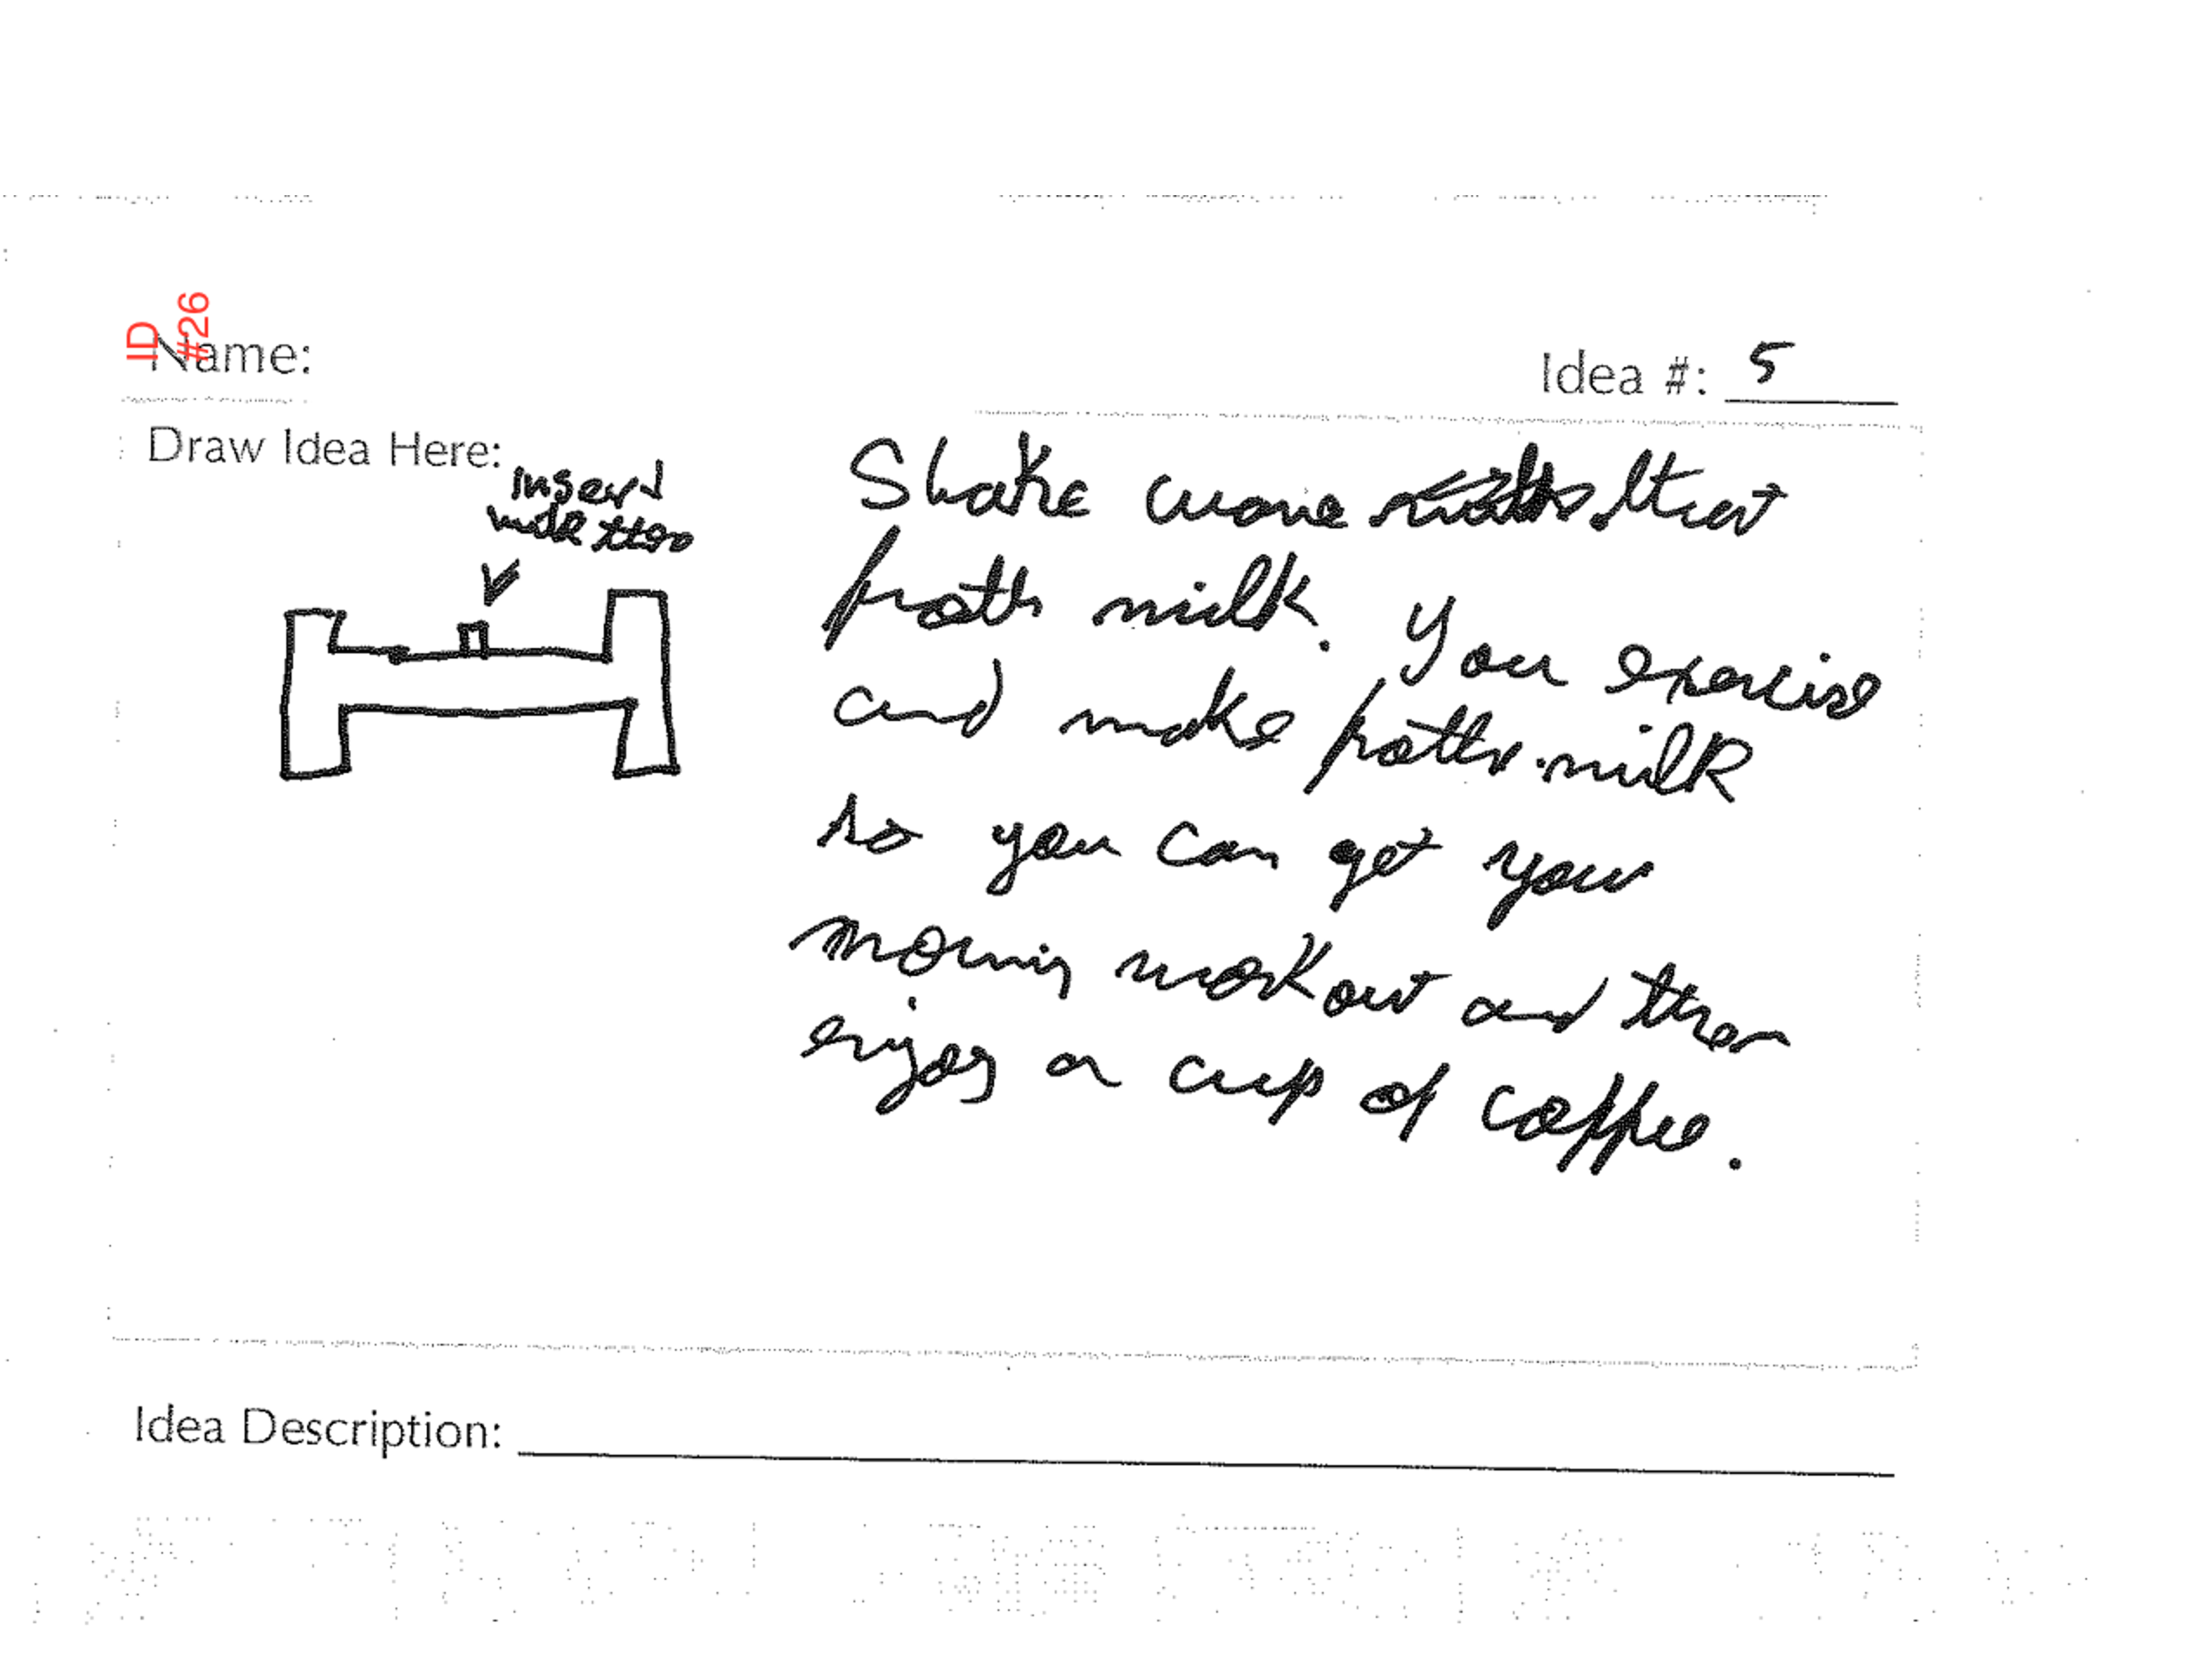 ID
#26
Name:
Idea #: 5
Draw Idea Here:
insert
milk here
Shake that
froth milk. You exercise
and make froth milk
so you can get your
morning workout and then
enjoy a cup of coffee.
Idea Description: